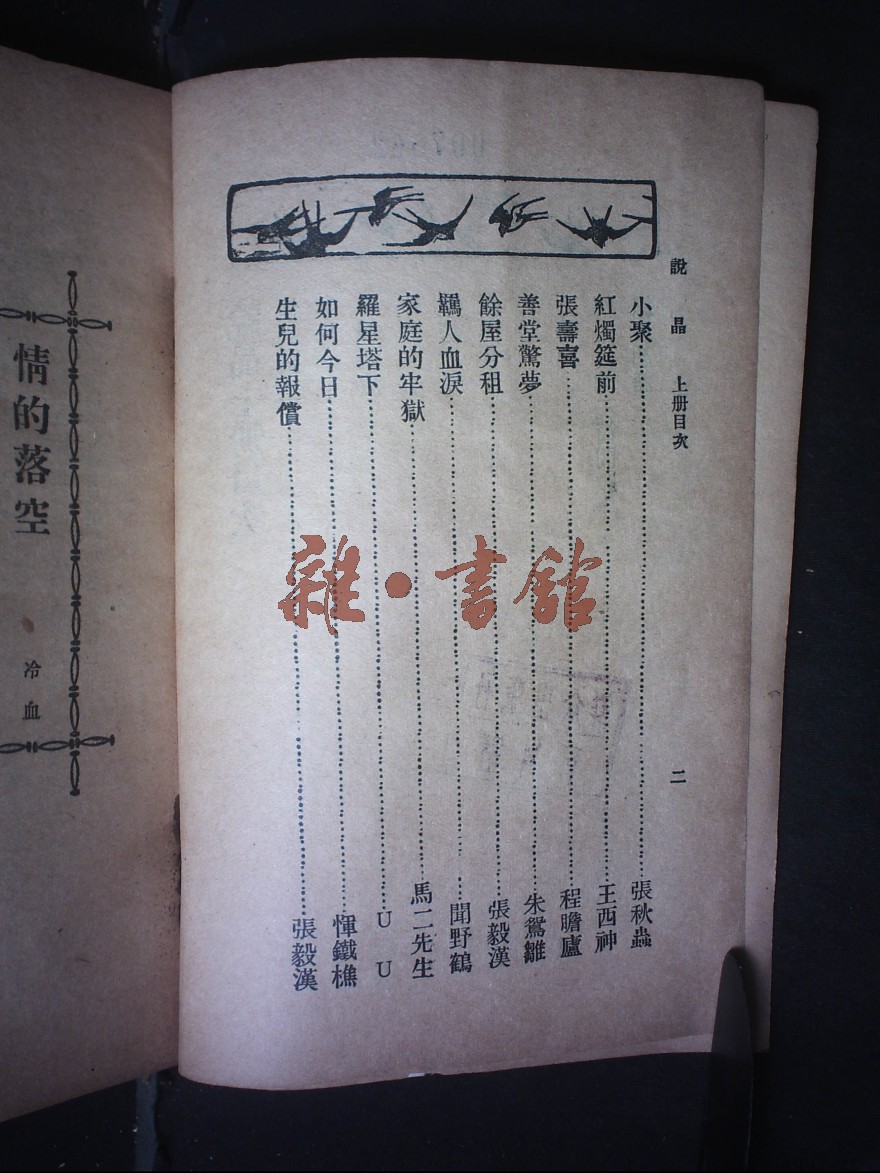 說晶 上册目次 二
小聚……張秋蟲
紅燭筵前……王西神
張壽喜……程瞻廬
善堂驚夢……朱鴛雛
餘屋分租……張毅漢
羈人血淚……聞野鶴
家庭的牢獄……馬二先生
羅星塔下……U U
如何今日……惲鐵樵
生兒的報償……張毅漢
情的落空
冷血
雜·書館